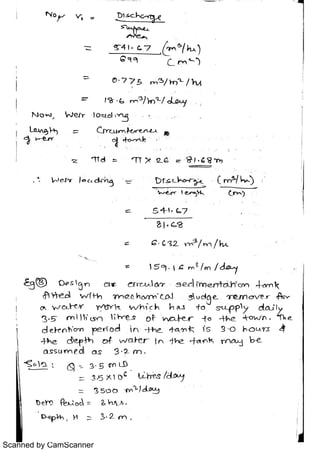 Now V₁ = Discharge
Surface
Area
= 541.67 (m³/hr)
699 (m²)
= 0.775 m³/m²/hr
= 18.6 m³/m²/day
Now, Weir loading
Length of weir = Circumference of tank
= πd = π × 26 = 81.68 m
∴ Weir loading = Discharge (m³/hr)
Weir length (m)
= 541.67
81.68
= 6.632 m³/m/hr
= 159.16 m³/m/day
Eg⑧ Design a circular sedimentation tank
fitted with mechanical sludge remover for
a water work which has to supply daily
3.5 million litres of water to the town. The
detention period in the tank is 3.0 hours &
the depth of water in the tank may be
assumed as 3.2 m.
Soln: Q = 3.5 MLD
= 3.5 × 10⁶ litres/day
= 3500 m³/day
Detn Period = 2 hrs.
Depth, H = 3.2 m.
Scanned by CamScanner